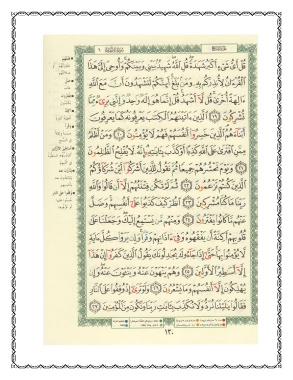 قُلْ أَىُّ شَىْءٍ أَكْبَرُ شَهَٰدَةً قُلِ ٱللَّهُ شَهِيدٌۢ بَيْنِى وَبَيْنَكُمْ وَأُوحِىَ إِلَىَّ هَٰذَا
ٱلْقُرْءَانُ لِأُنذِرَكُم بِهِۦ وَمَنۢ بَلَغَ أَئِنَّكُمْ لَتَشْهَدُونَ أَنَّ مَعَ ٱللَّهِ
ءَالِهَةً أُخْرَىٰ قُل لَّآ أَشْهَدُ قُلْ إِنَّمَا هُوَ إِلَٰهٌ وَٰحِدٌ وَإِنَّنِى بَرِىٓءٌ مِّمَّا
تُشْرِكُونَ ١٩ ٱلَّذِينَ ءَاتَيْنَٰهُمُ ٱلْكِتَٰبَ يَعْرِفُونَهُۥ كَمَا يَعْرِفُونَ
أَبْنَآءَهُمُ ٱلَّذِينَ خَسِرُوٓا۟ أَنفُسَهُمْ فَهُمْ لَا يُؤْمِنُونَ ٢٠ وَمَنْ أَظْلَمُ
مِمَّنِ ٱفْتَرَىٰ عَلَى ٱللَّهِ كَذِبًا أَوْ كَذَّبَ بِـَٔايَٰتِهِۦٓ إِنَّهُۥ لَا يُفْلِحُ ٱلظَّٰلِمُونَ
٢١ وَيَوْمَ نَحْشُرُهُمْ جَمِيعًا ثُمَّ نَقُولُ لِلَّذِينَ أَشْرَكُوٓا۟ أَيْنَ شُرَكَآؤُكُمُ
ٱلَّذِينَ كُنتُمْ تَزْعُمُونَ ٢٢ ثُمَّ لَمْ تَكُن فِتْنَتُهُمْ إِلَّآ أَن قَالُوا۟ وَٱللَّهِ
رَبِّنَا مَا كُنَّا مُشْرِكِينَ ٢٣ ٱنظُرْ كَيْفَ كَذَبُوا۟ عَلَىٰٓ أَنفُسِهِمْ وَضَلَّ
عَنْهُم مَّا كَانُوا۟ يَفْتَرُونَ ٢٤ وَمِنْهُم مَّن يَسْتَمِعُ إِلَيْكَ وَجَعَلْنَا عَلَىٰ
قُلُوبِهِمْ أَكِنَّةً أَن يَفْقَهُوهُ وَفِىٓ ءَاذَانِهِمْ وَقْرًا وَإِن يَرَوْا۟ كُلَّ ءَايَةٍ
لَّا يُؤْمِنُوا۟ بِهَا حَتَّىٰٓ إِذَا جَآءُوكَ يُجَٰدِلُونَكَ يَقُولُ ٱلَّذِينَ كَفَرُوٓا۟ إِنْ هَٰذَآ
إِلَّآ أَسَٰطِيرُ ٱلْأَوَّلِينَ ٢٥ وَهُمْ يَنْهَوْنَ عَنْهُ وَيَنْـَٔوْنَ عَنْهُ وَإِن
يُهْلِكُونَ إِلَّآ أَنفُسَهُمْ وَمَا يَشْعُرُونَ ٢٦ وَلَوْ تَرَىٰٓ إِذْ وُقِفُوا۟ عَلَى ٱلنَّارِ
فَقَالُوا۟ يَٰلَيْتَنَا نُرَدُّ وَلَا نُكَذِّبَ بِـَٔايَٰتِ رَبِّنَا وَنَكُونَ مِنَ ٱلْمُؤْمِنِينَ ٢٧
١٣٠